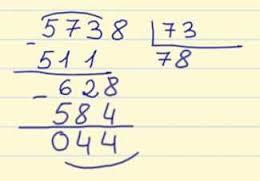 5738 73
- 511 78
- 628
584
044